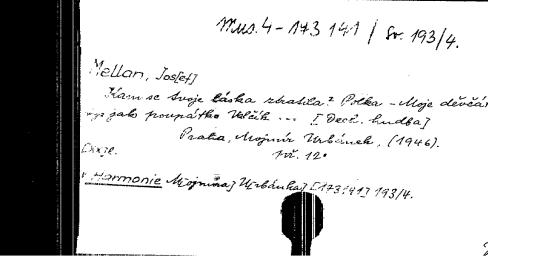 Mus. 4 - 173 141 / Sv. 193/4.
Mellan, Jos[ef]
Kam se tvoje láska ztratila? Polka - Moje děvčá
jako poupátko Valčík ... [Dech. hudba]
Praha, Mojmír Urbánek, (1946).
12°
Harmonie Mojmíra] Urbánka] [173141] 193/4.